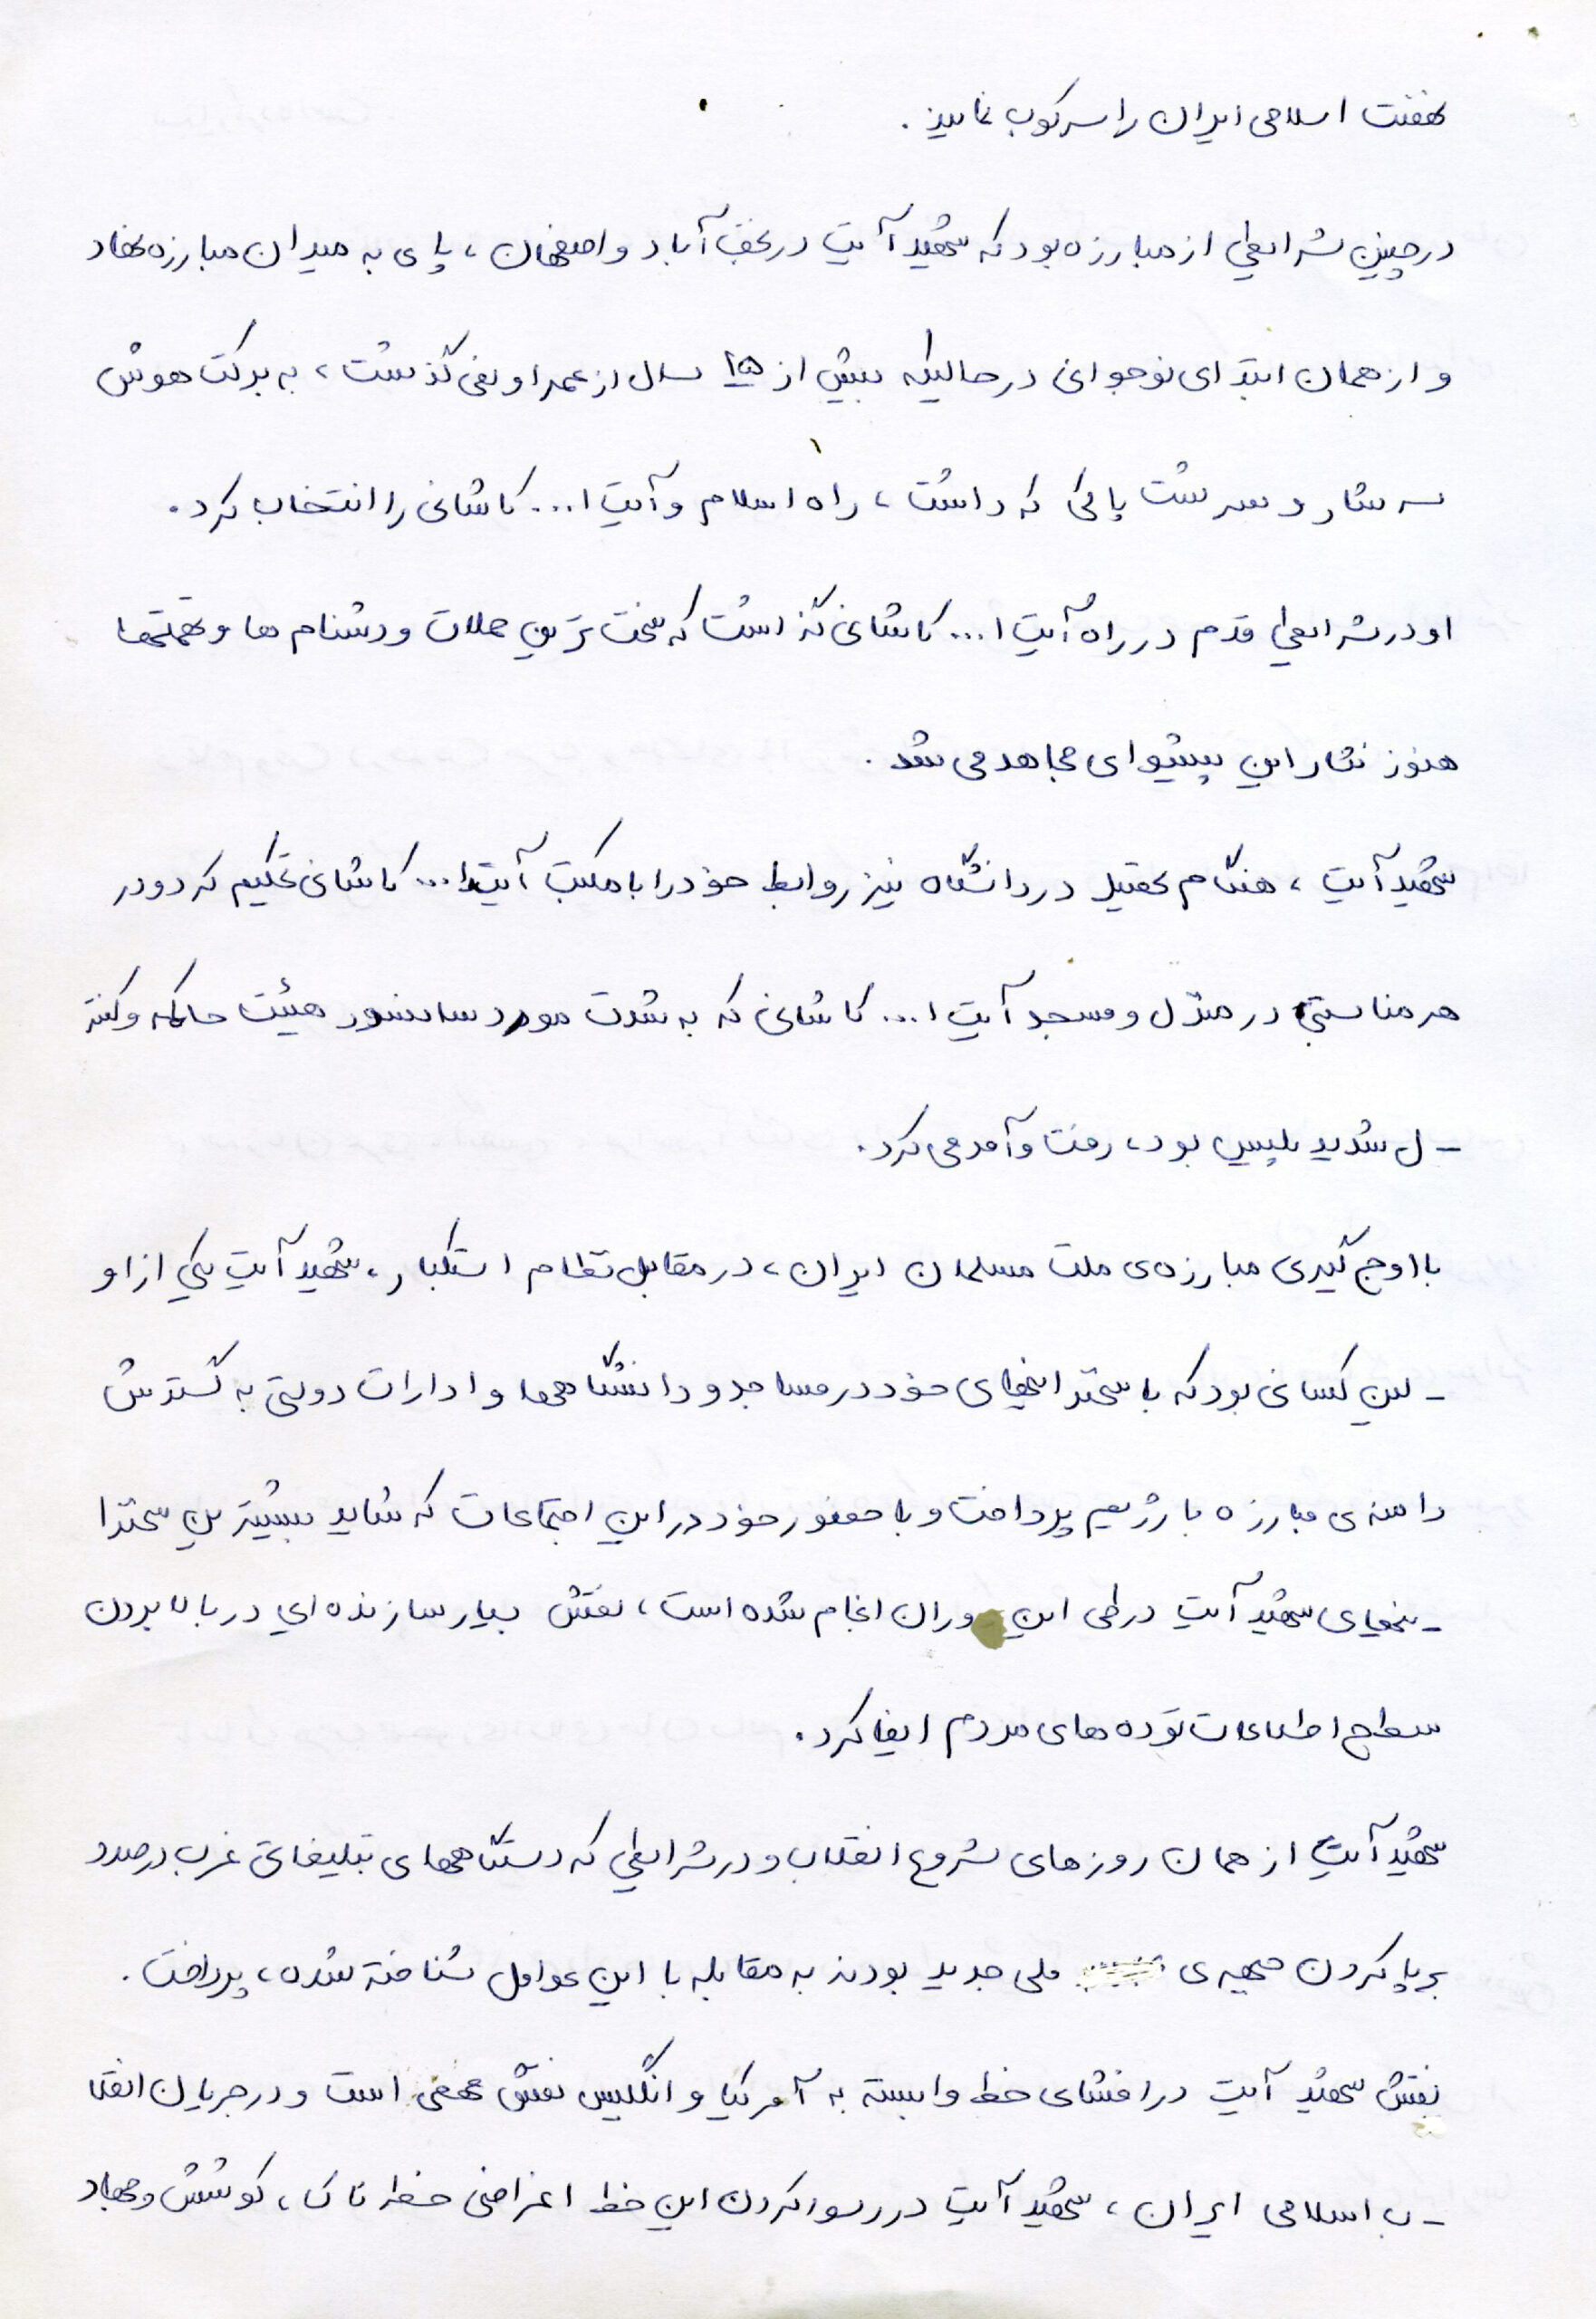 نهضت اسلامی ایران را سرکوب نمایند.
در چنین شرایطی از مبارزه بود که شهید آیت در نجف آباد و اصفهان، پای به میدان مبارزه نهاد
و از همان ابتدای نوجوانی در حالیکه بیش از ۱۵ سال از عمر او نمی گذشت، به برکت هوش
سرشار و سرشت پاکی که داشت، راه اسلام و آیت ا... کاشانی را انتخاب کرد.
او در شرایطی قدم در راه آیت ا... کاشانی گذاشت که سخت ترین حملات و دشنام ها و تهمتها
هنوز نثار این پیشوای مجاهد می شد.
شهید آیت، هنگام تحصیل در دانشگاه نیز روابط خود را با مکتب آیت ا... کاشانی تحکیم کرد و در
هر مناسبتی در منزل و مسجد آیت ا... کاشانی که به شدت مورد سانسور هیئت حاکمه و کنتر
- ل شدید پلیس بود، رفت و آمد می کرد.
با اوج گیری مبارزه ی ملت مسلمان ایران، در مقابل نظام استکبار، شهید آیت یکی از او
- لین کسانی بود که با سخنرانیهای خود در مساجد و دانشگاهها و ادارات دولتی به گسترش
دامنه ی مبارزه با رژیم پرداخت و با حضور خود در این اجتماعات که شاید بیشترین سخنرا
- نیهای شهید آیت در طی این دوران انجام شده است، نقش بسیار سازنده ای در بالا بردن
سطح اطلاعات توده های مردم ایفا کرد.
شهید آیت از همان روزهای شروع انقلاب و در شرایطی که دستگاههای تبلیغاتی غرب درصدد
برپا کردن جبهه ی ملی جدید بودند به مقابله با این عوامل شناخته شده، پرداخت.
نقش شهید آیت در افشای خط وابسته به آمریکا و انگلیس نقش مهمی است و در جریان انقلا
- ب اسلامی ایران، شهید آیت در رسوا کردن این خط اعراضی خطرناک، کوشش و جهاد